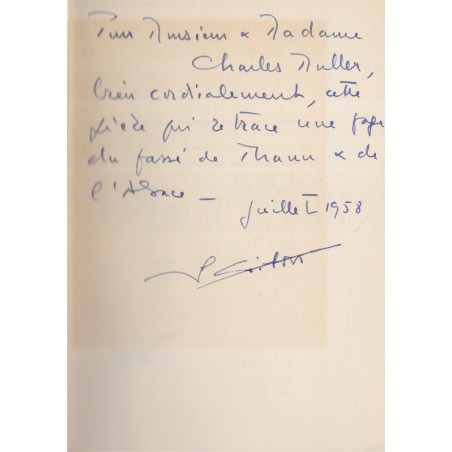 Pour Monsieur & Madame
Charles Muller,
bien cordialement, cette
pièce qui retrace une page
du passé de Thann & de
l'Alsace —
juillet 1958